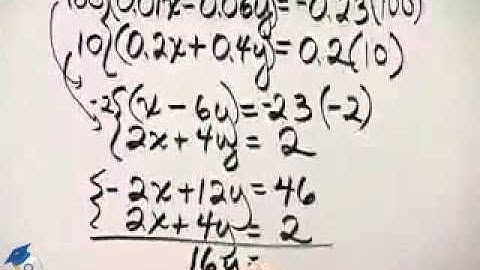 100{(0.01x-0.06y)=-0.23(100)
10{(0.2x+0.4y)=0.2(10)
-2{(x-6y)=-23(-2)
{2x+4y=2
{-2x+12y=46
2x+4y=2
16y=